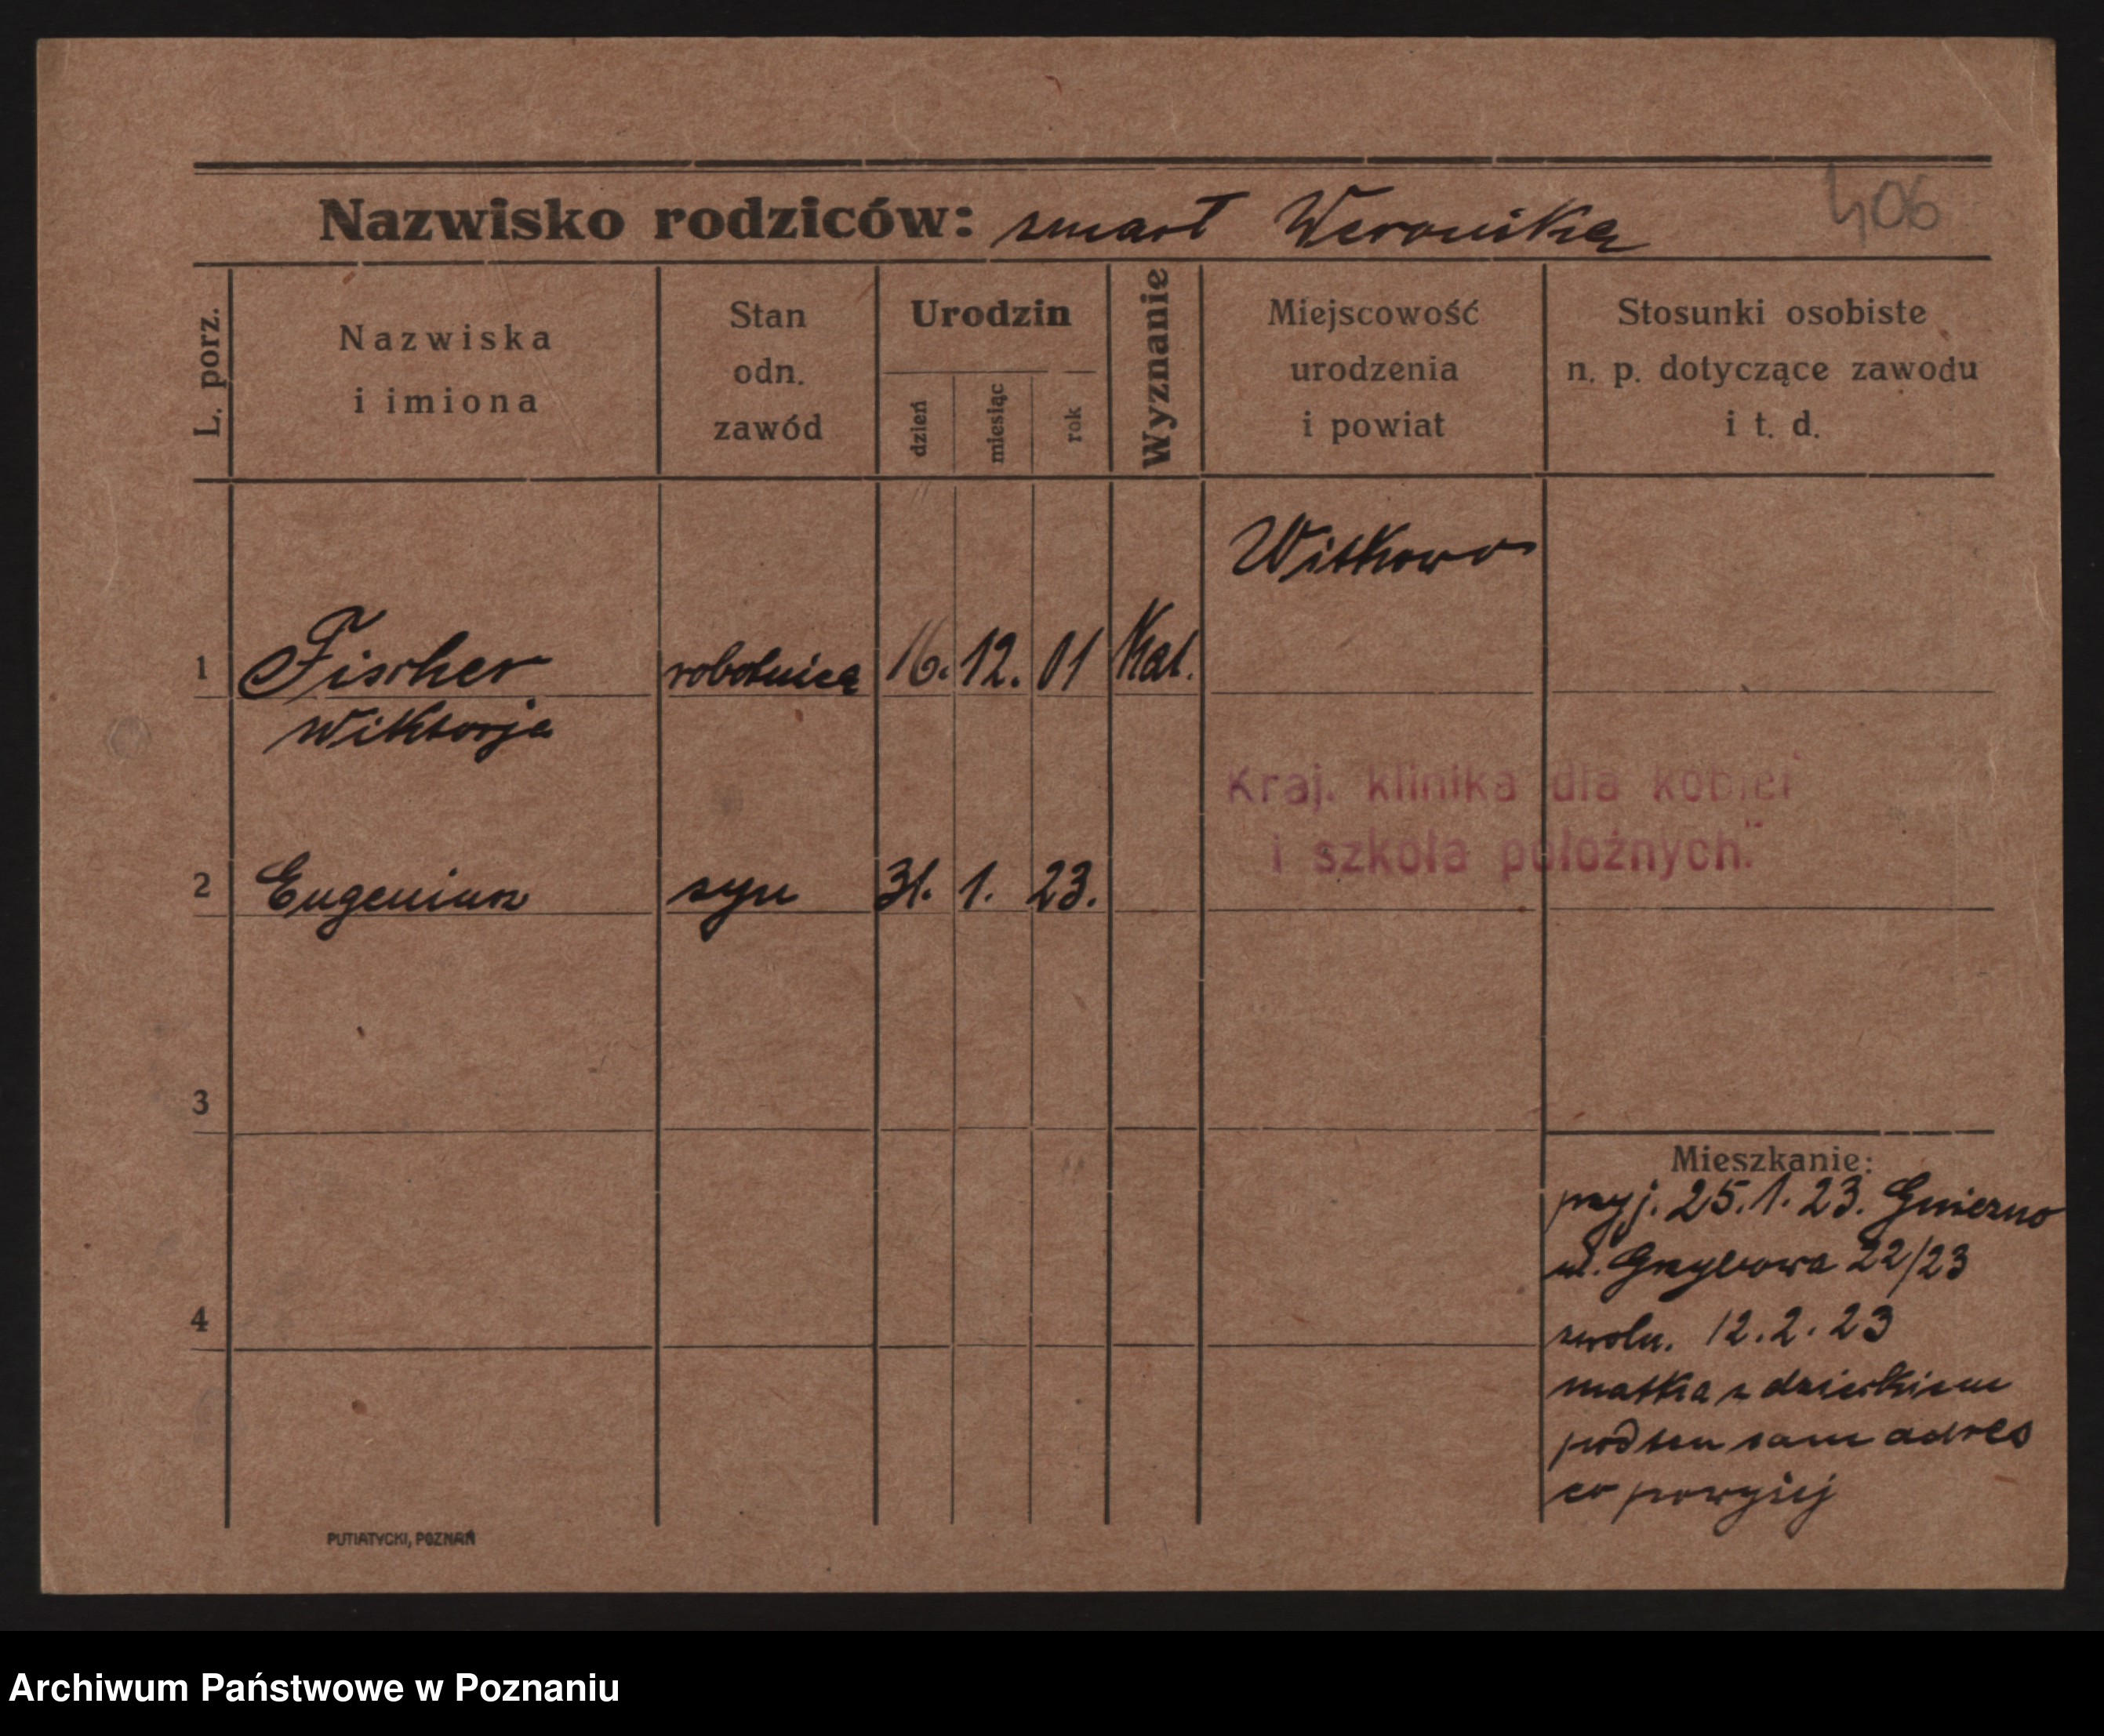 406
Nazwisko rodziców: zmarł Weronika
L. porz.
Nazwiska
i imiona
Stan
odn.
zawód
Urodzin
dzień
miesiąc
rok
Wyznanie
Miejscowość
urodzenia
i powiat
Stosunki osobiste
n. p. dotyczące zawodu
i t. d.
Witkowo
1 Fischer robotnica 16. 12. 01 Kat.
Wiktorja
Kraj. klinika dla kobiet
i szkoła położnych."
2 Eugeniusz syn 31. 1. 23.
3
4
Mieszkanie:
przyj. 25.1.23. Gniezno
ul. Grzybowa 22/23
zwoln. 12.2.23
matka z dzieckiem
pod ten sam adres
co powyżej
PUTIATYCKI, POZNAŃ
Archiwum Państwowe w Poznaniu